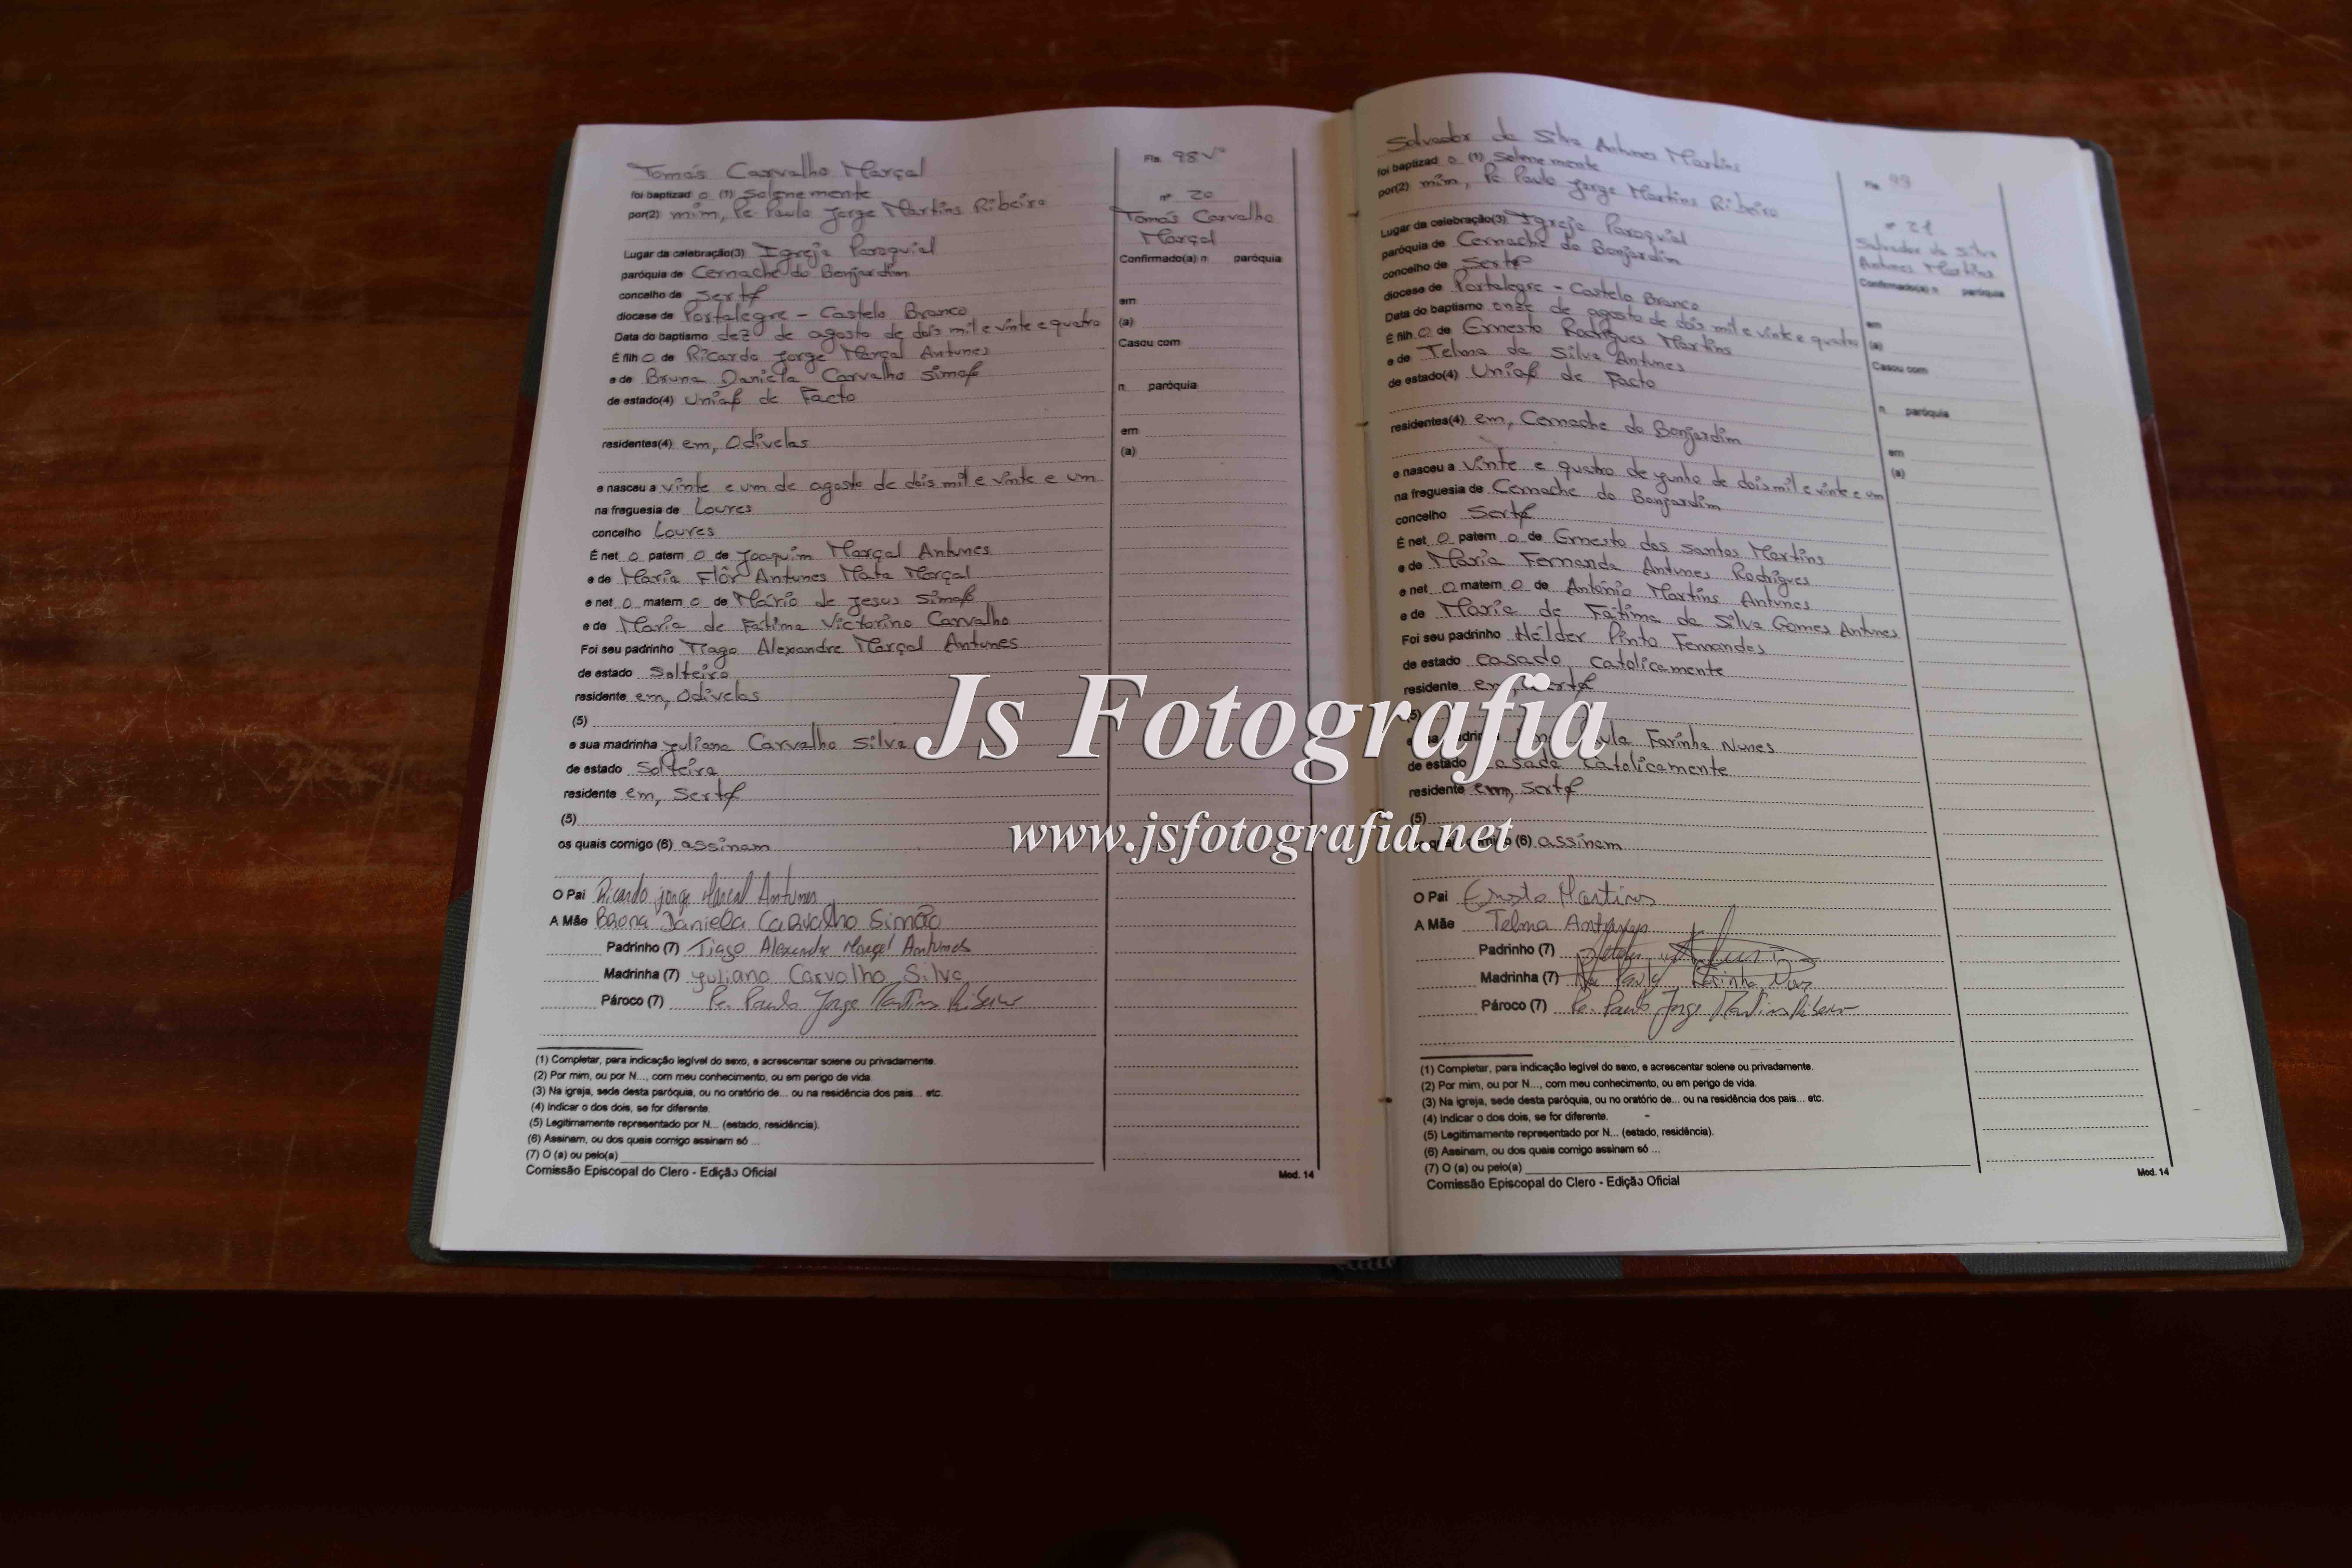 Tomás Carvalho Marçal
foi baptizad o (1) Solenemente
por(2) mim, Pe Paulo Jorge Martins Ribeiro
Lugar da celebração(3) Igreja Paroquial
paróquia de Cernache do Bonjardim
concelho de Sertã
diocese de Portalegre - Castelo Branco
Data do baptismo dez de agosto de dois mil e vinte e quatro
É filh o de Ricardo Jorge Marçal Antunes
e de Bruna Daniela Carvalho Simão
de estado(4) União de Facto
residentes(4) em, Odivelas
e nasceu a vinte e um de agosto de dois mil e vinte e um
na freguesia de Loures
concelho Loures
É net o patern o de Joaquim Marçal Antunes
e de Maria Flôr Antunes Mata Marçal
e net o matern o de Mário de Jesus Simão
e de Maria de Fátima Victorino Carvalho
Foi seu padrinho Tiago Alexandre Marçal Antunes
de estado Solteiro
residente em, Odivelas
(5)
e sua madrinha Juliana Carvalho Silva
de estado Solteira
residente em, Sertã
(5)
os quais comigo (6) assinam
O Pai Ricardo Jorge Marçal Antunes
A Mãe Bruna Daniela Carvalho Simão
Padrinho (7) Tiago Alexandre Marçal Antunes
Madrinha (7) Juliana Carvalho Silva
Pároco (7) Pe. Paulo Jorge Martins Ribeiro
(1) Completar, para indicação legível do sexo, e acrescentar solene ou privadamente.
(2) Por mim, ou por N..., com meu conhecimento, ou em perigo de vida.
(3) Na igreja, sede desta paróquia, ou no oratório de... ou na residência dos pais... etc.
(4) Indicar o dos dois, se for diferente.
(5) Legitimamente representado por N... (estado, residência).
(6) Assinam, ou dos quais comigo assinam só ...
(7) O (a) ou pelo(a)
Comissão Episcopal do Clero - Edição Oficial
Mod. 14
Fls. 98 Vº
nº 20
Tomás Carvalho
Marçal
Confirmado(a) n paróquia
em
(a)
Casou com
n. paróquia
em
(a)
Salvador da Silva Antunes Martins
foi baptizad o (1) Solenemente
por(2) mim, Pe Paulo Jorge Martins Ribeiro
Lugar da celebração(3) Igreja Paroquial
paróquia de Cernache do Bonjardim
concelho de Sertã
diocese de Portalegre - Castelo Branco
Data do baptismo onze de agosto de dois mil e vinte e quatro
É filh o de Ernesto Rodrigues Martins
e de Telma da Silva Antunes
de estado(4) União de Facto
residentes(4) em, Cernache do Bonjardim
e nasceu a vinte e quatro de junho de dois mil e vinte e um
na freguesia de Cernache do Bonjardim
concelho Sertã
É net o patern o de Ernesto dos Santos Martins
e de Maria Fernanda Antunes Rodrigues
e net o matern o de António Martins Antunes
e de Maria de Fátima da Silva Gomes Antunes
Foi seu padrinho Hélder Pinto Fernandes
de estado casado catolicamente
residente em, Sertã
(5)
e sua madrinha Paula Farinha Nunes
de estado casada catolicamente
residente em, Sertã
(5)
(6) assinam
O Pai Ernesto Martins
A Mãe Telma Antunes
Padrinho (7)
Madrinha (7) Ana Paula Farinha Nunes
Pároco (7) Pe. Paulo Jorge Martins Ribeiro
(1) Completar, para indicação legível do sexo, e acrescentar solene ou privadamente.
(2) Por mim, ou por N..., com meu conhecimento, ou em perigo de vida.
(3) Na igreja, sede desta paróquia, ou no oratório de... ou na residência dos pais... etc.
(4) Indicar o dos dois, se for diferente.
(5) Legitimamente representado por N... (estado, residência).
(6) Assinam, ou dos quais comigo assinam só ...
(7) O (a) ou pelo(a)
Comissão Episcopal do Clero - Edição Oficial
Mod. 14
Fls. 99
nº 21
Salvador da Silva
Antunes Martins
Confirmado(a) n paróquia
em
(a)
Casou com
n. paróquia
em
(a)
Js Fotografia
www.jsfotografia.net